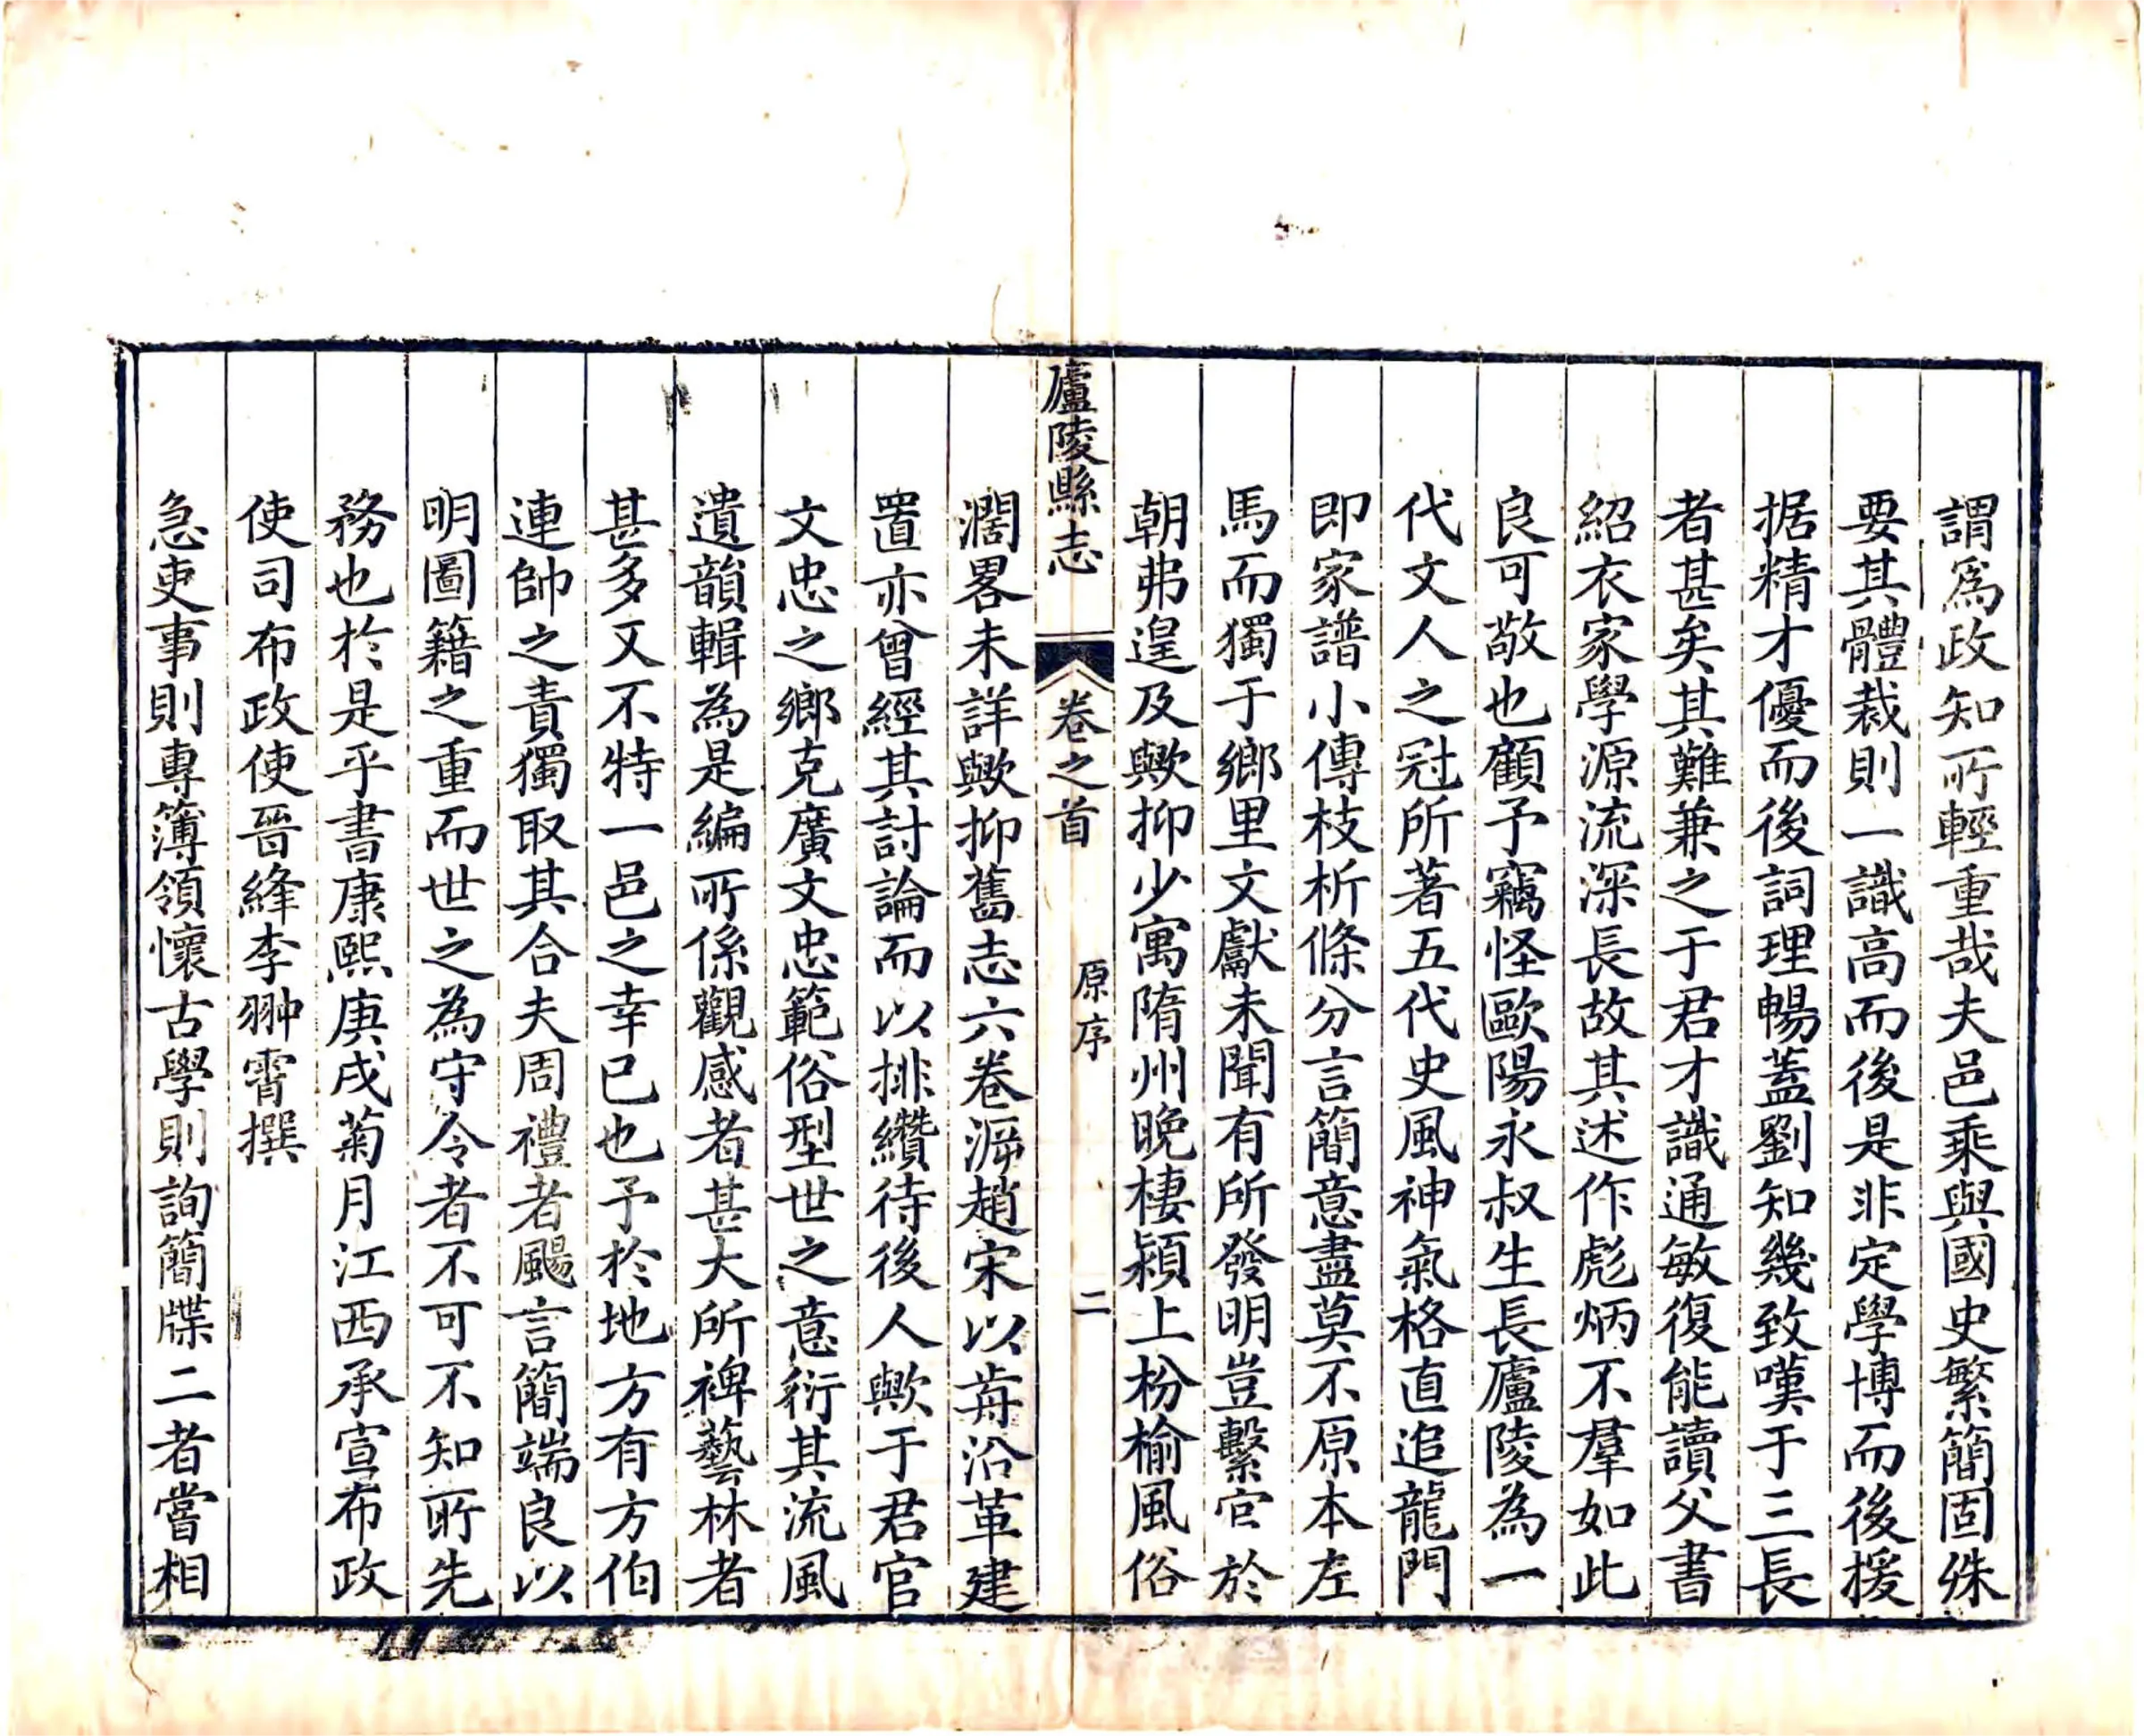 謂為政知所輕重哉夫邑乘與國史繁簡固殊
要其體裁則一識高而後是非定學博而後援
据精才優而後詞理暢蓋劉知幾致嘆于三長
者甚矣其難兼之于君才識通敏復能讀父書
紹衣家學源流深長故其述作彪炳不羣如此
良可敬也顧予竊怪歐陽永叔生長廬陵為一
代文人之冠所著五代史風神氣格直追龍門
即家譜小傳枝析條分言簡意盡莫不原本左
馬而獨于鄉里文獻未聞有所發明豈繫官於
朝弗遑及歟抑少寓隋州晚棲潁上枌榆風俗
廬陵縣志 卷之首 原序 二
濶畧未詳歟抑舊志六卷㳂趙宋以前沿革建
置亦曾經其討論而以排纘待後人歟于君官
文忠之鄉克廣文忠範俗型世之意衍其流風
遺韻輯為是編所係觀感者甚大所裨藝林者
甚多又不特一邑之幸已也予於地方有方伯
連帥之責獨取其合夫周禮者颺言簡端良以
明圖籍之重而世之為守令者不可不知所先
務也於是乎書康熙庚戌菊月江西承宣布政
使司布政使晉絳李翀霄撰
急吏事則專簿領懷古學則詢簡牒二者嘗相